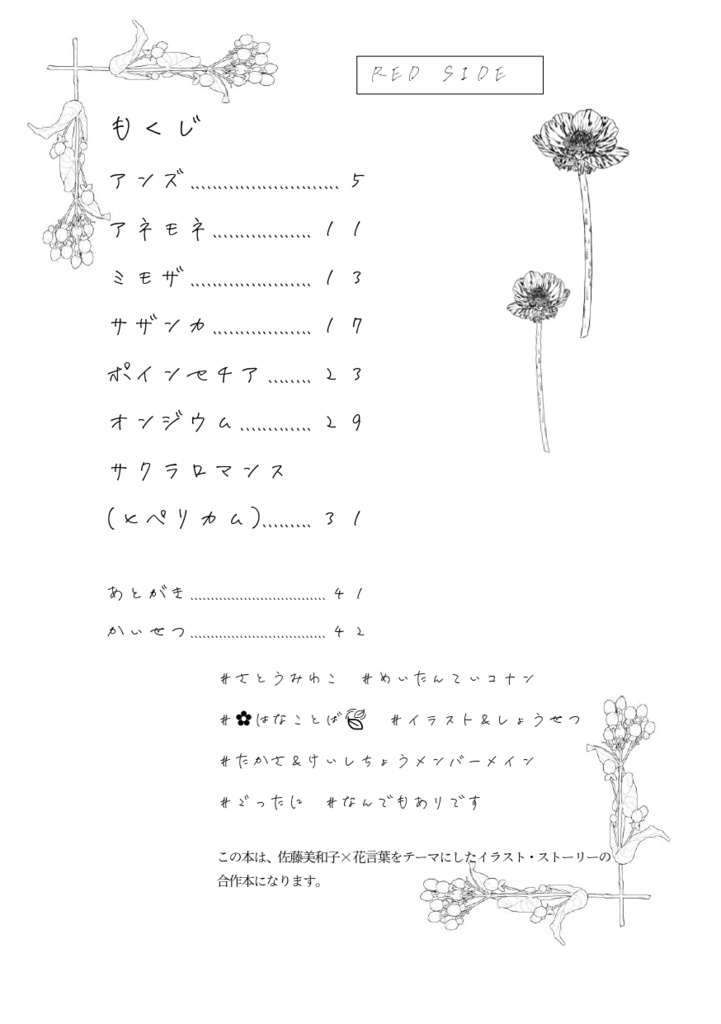 RED SIDE
もくじ
アンズ........................... 5
アネモネ.................. 11
ミモザ...................... 13
サザンカ.................. 17
ポインセチア........ 23
オンジウム............. 29
サクラロマンス
(ヒペリカム)......... 31
あとがき................................. 41
かいせつ................................. 42
#さとうみわこ #めいたんていコナン
#✿はなことば🍃 #イラスト&しょうせつ
#たかさ&けいしちょうメンバーメイン
#ごったに #なんでもありです
この本は、佐藤美和子×花言葉をテーマにしたイラスト・ストーリーの
合作本になります。